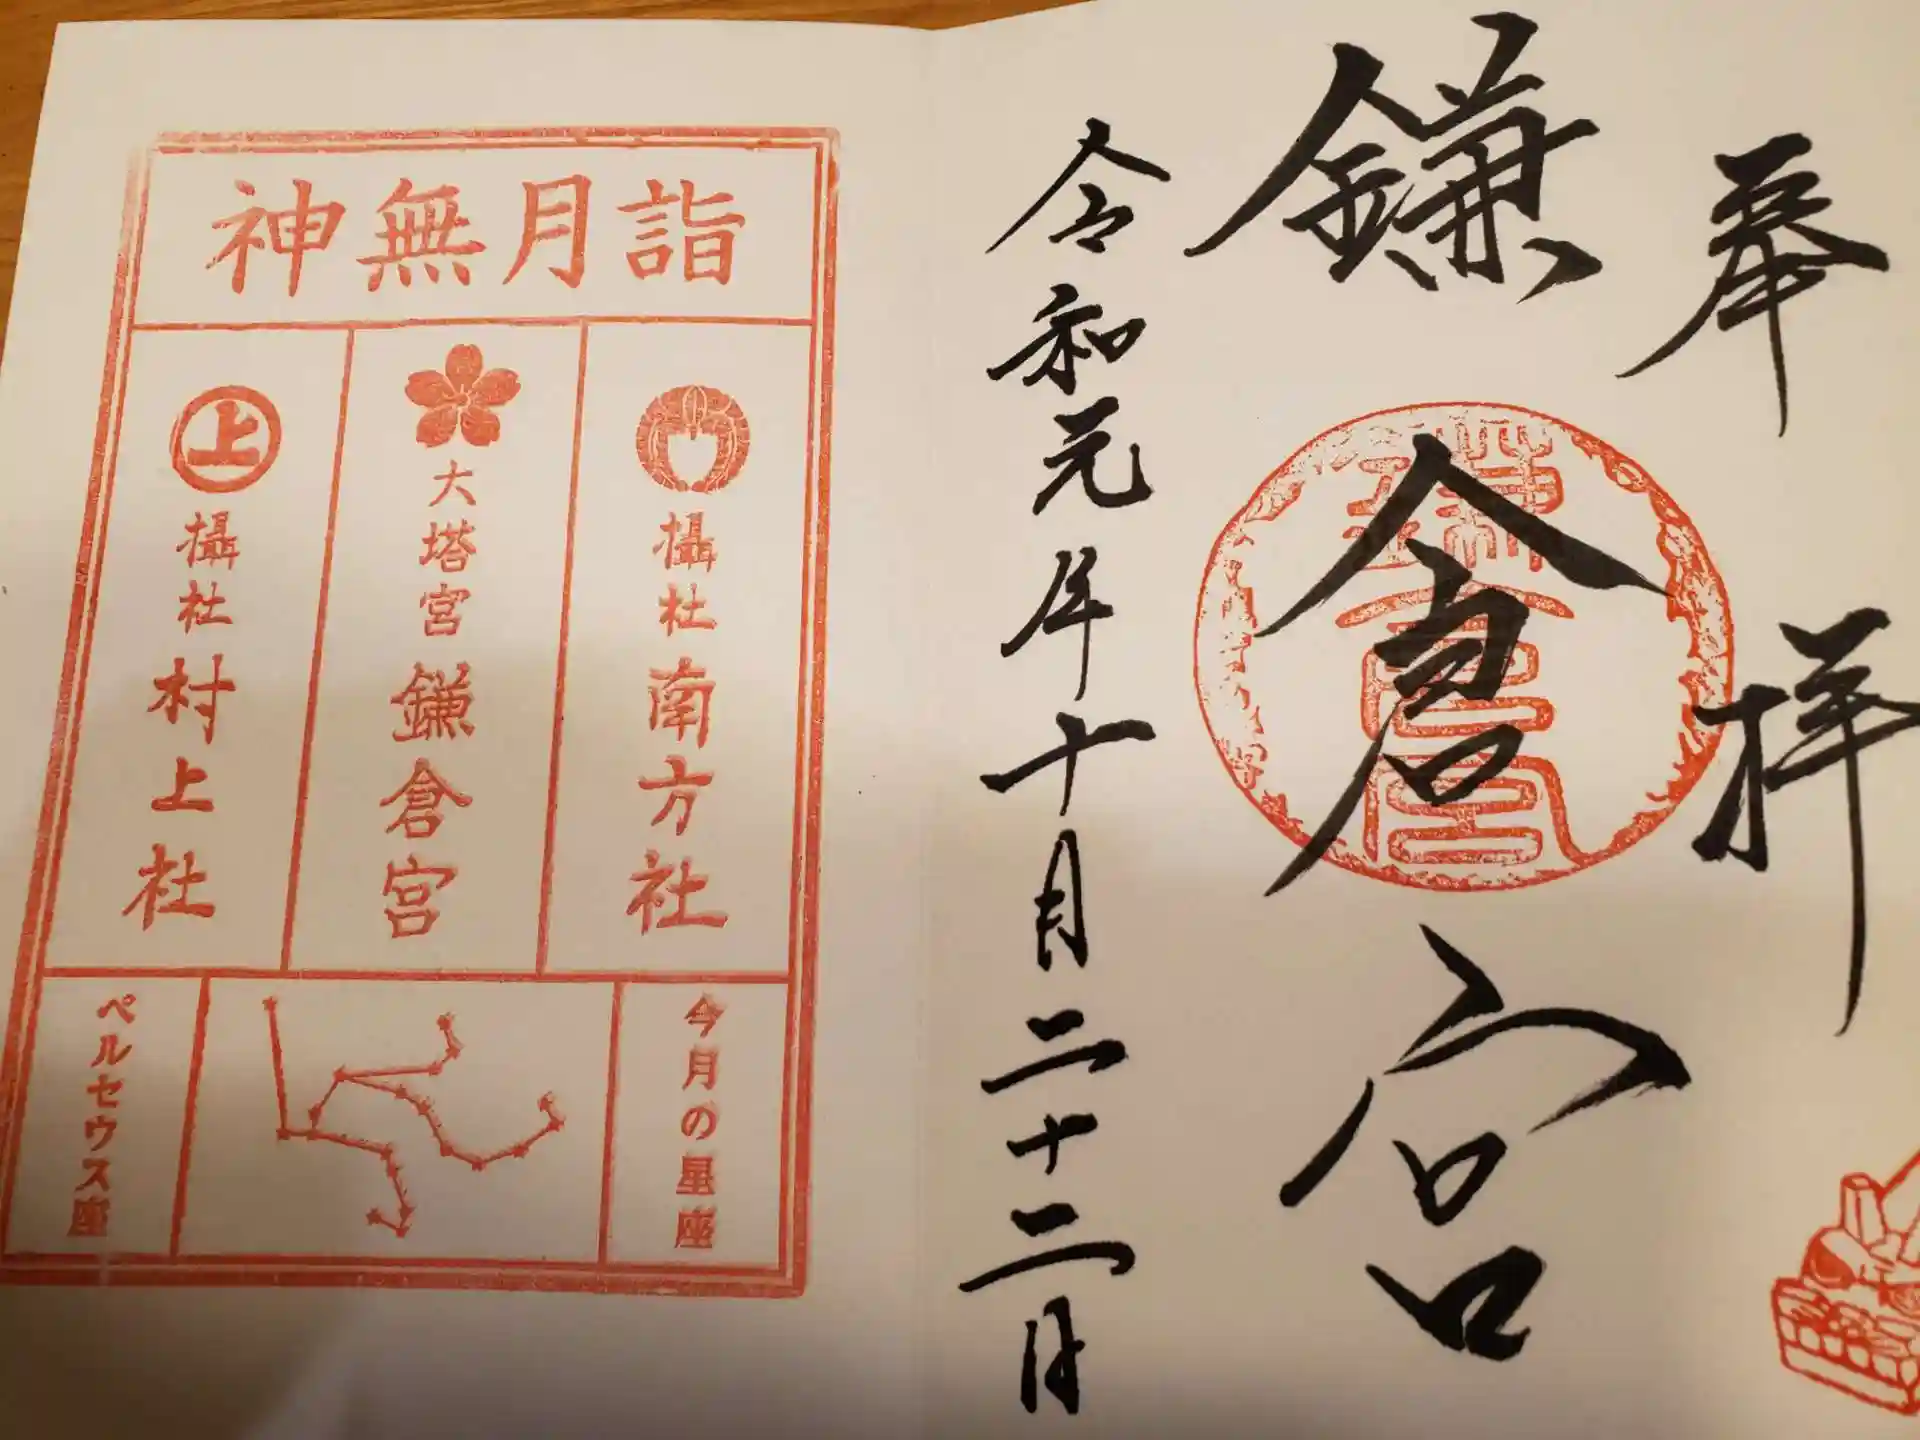 奉拝
鎌倉宮
令和元年十月二十二日
鎌倉宮
神無月詣
攝社 南方社
大塔宮 鎌倉宮
上
攝社 村上社
今月の星座
ペルセウス座